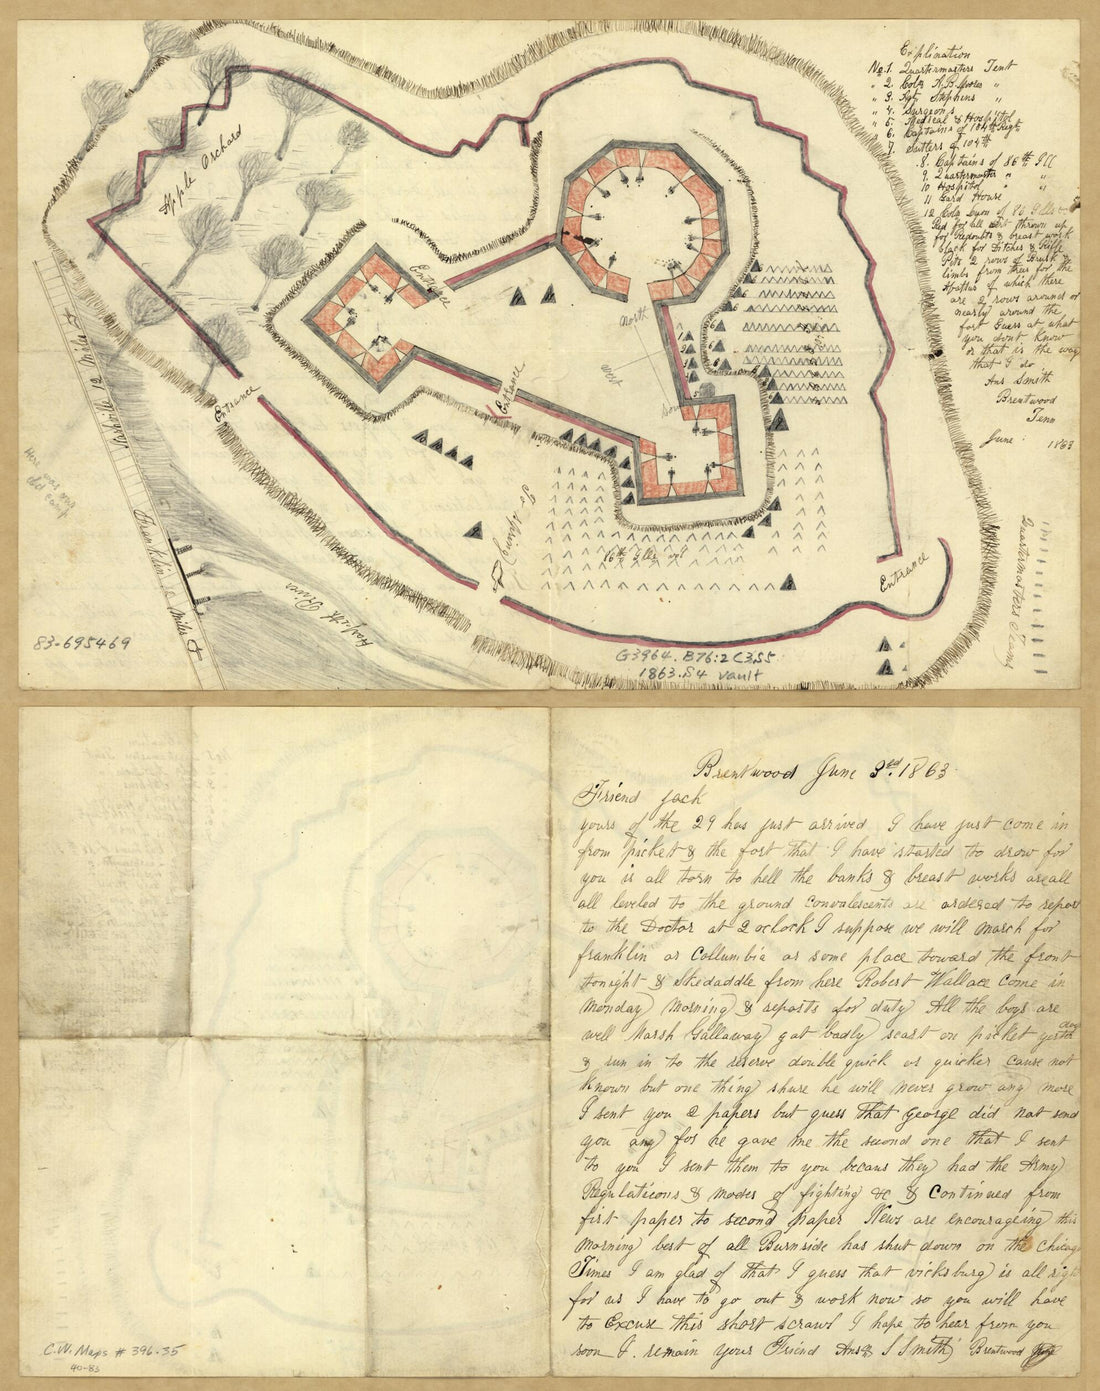 Explination
No 1. Quartermasters Tent
" 2. Colo A. B. Moore "
" 3. Sgt Stephens "
" 4. Surgeons
" 5. Medical & Hospitol
6. Captains of 104th Regt
7. Sutlers of 104th
.8. Captains of 86th Ill
9. Quartermaster " "
10 Hospitol " "
11 Gard House
12 Colo of 83 Ills
Red for all dirt thrown up
for Redoubts & breast work
black for Ditches & Rifle
Pits 2 rows of Brush &
limbs from trees for the
of which there
are 2 rows around or
nearly around the
fort Guess at what
you dont know
as that is the way
that I do
Ans Smith
Brentwood
Tenn
June 1863
Apple Orchard
Entrance
North
West
Entrance
Entrance
Nashville 12 Miles
Franklin 12 Miles
Harpeth River
Here was our
old camp
To Spring
Entrance
Quartermasters Teams
83-695469
G3964.B76:2C3S5
1863.S4 Vault
Brentwood June 3rd. 1863
Friend Jack
yours of the 29 has just arrived I have just come in
from picket & the fort that I have started to drow for
you is all torn to hell the banks & breast works are all
all leveled to the ground convalescents are ordered to report
to the Doctor at 2 oclock I suppose we will march for
franklin or Collumbia or some place toward the front
tonight & Skedaddle from here Robert Wallace come in
Monday Morning & reports for duty All the boys are
well Marsh Gallaway got badly scart on picket yesterday
& run in to the reserve double quick or quicker cause not
known but one thing shure he will never grow any more
I sent you 2 papers but guess that George did not send
you any for he gave me the second one that I sent
to you I sent them to you becaus they had the Army
Regulations & modes of fighting &c & Continued from
first paper to second paper News are encourageing this
morning best of all Burnside has shut down on the Chicago
Times I am glad of that I guess that vicksburg is all right
for us I have to go out & work now so you will have
to Excuse this short scrawl I hope to hear from you
soon I remain your Friend S Smith Brentwood
C.W. Maps # 396.35
40-83